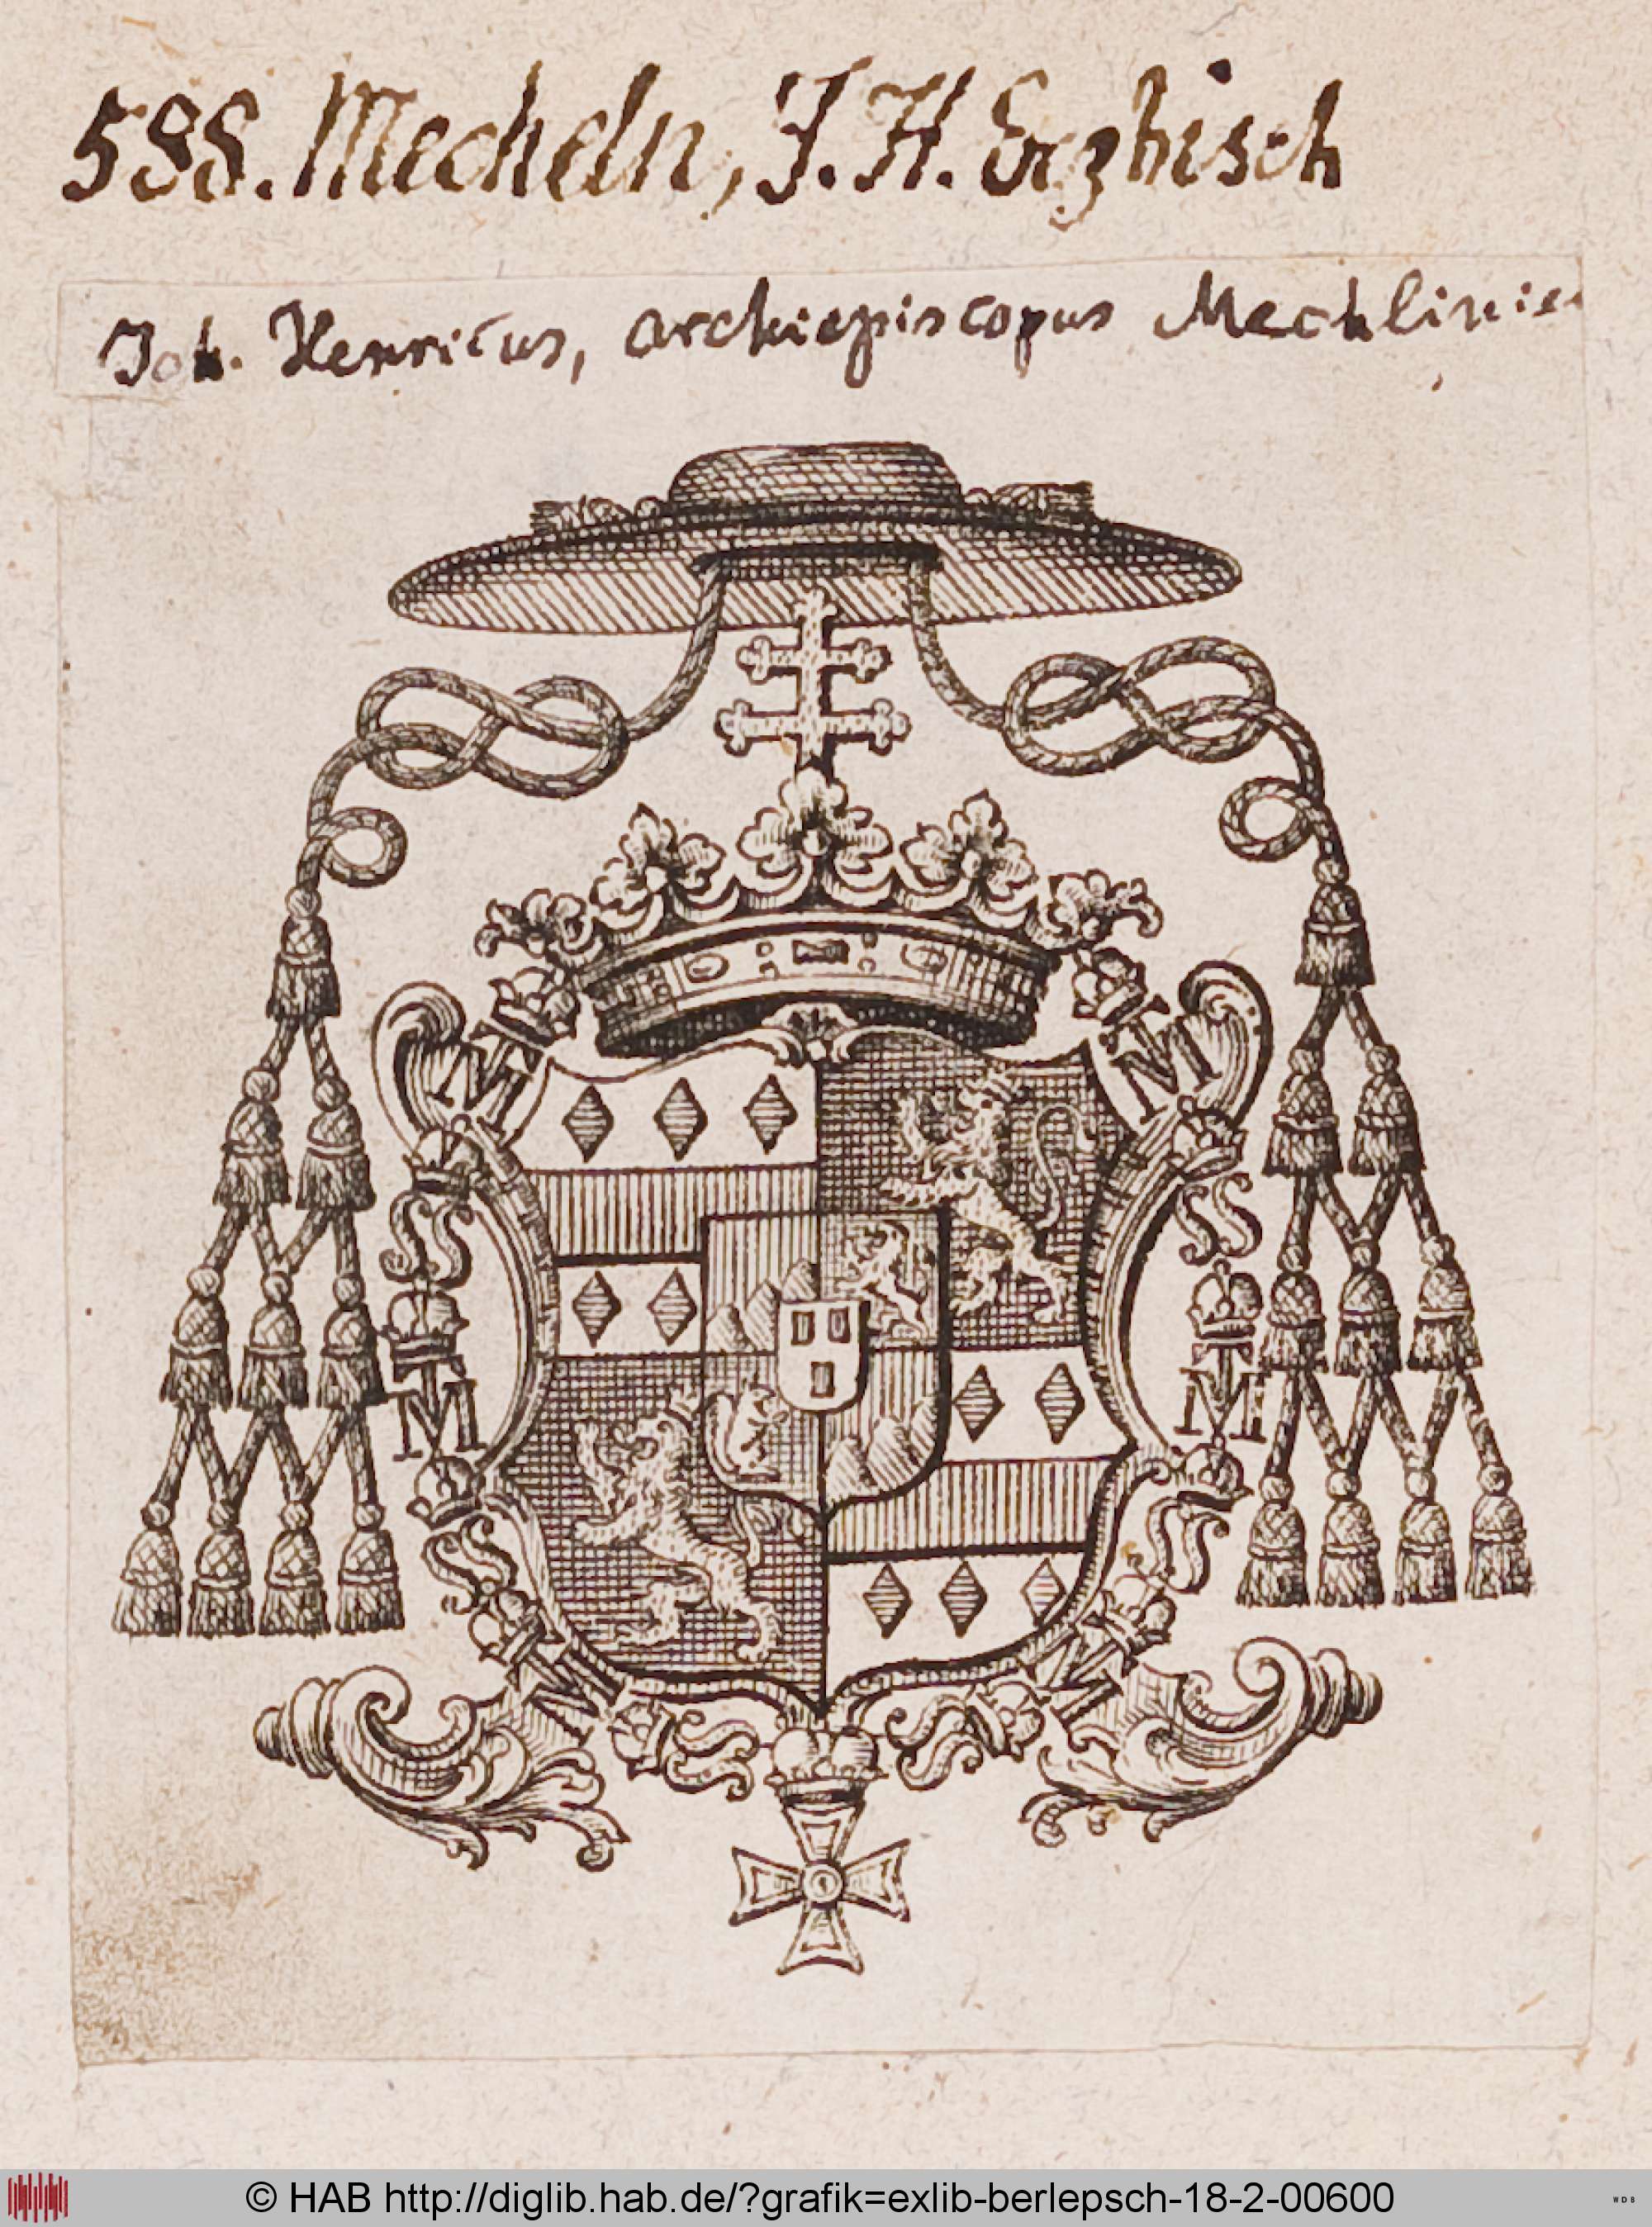 588. Mecheln, J. H. Erzbisch
Joh. Henricus, archiepiscopus Mechlinie.
M M
S S
M M
S S
M M
S S
© HAB http://diglib.hab.de/?grafik=exlib-berlepsch-18-2-00600
WDB